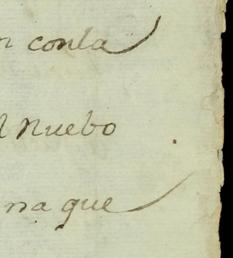 n conla
l Nuebo
na que